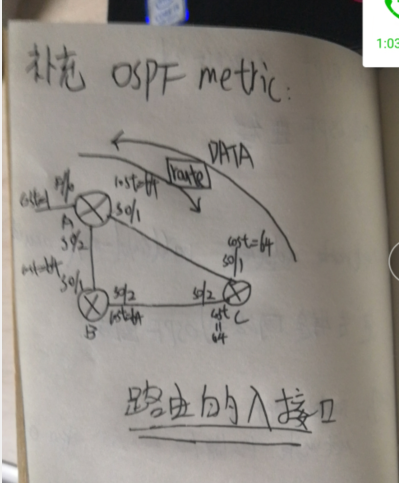 补充 OSPF metric:
DATA
route
cost=64
F0/0
cost=1
S0/1
A
S0/2
cost=64
S0/1
cost=64
S0/1
B
S0/2
cost=64
S0/2
C
cost
=
64
路由的入接口
1:03